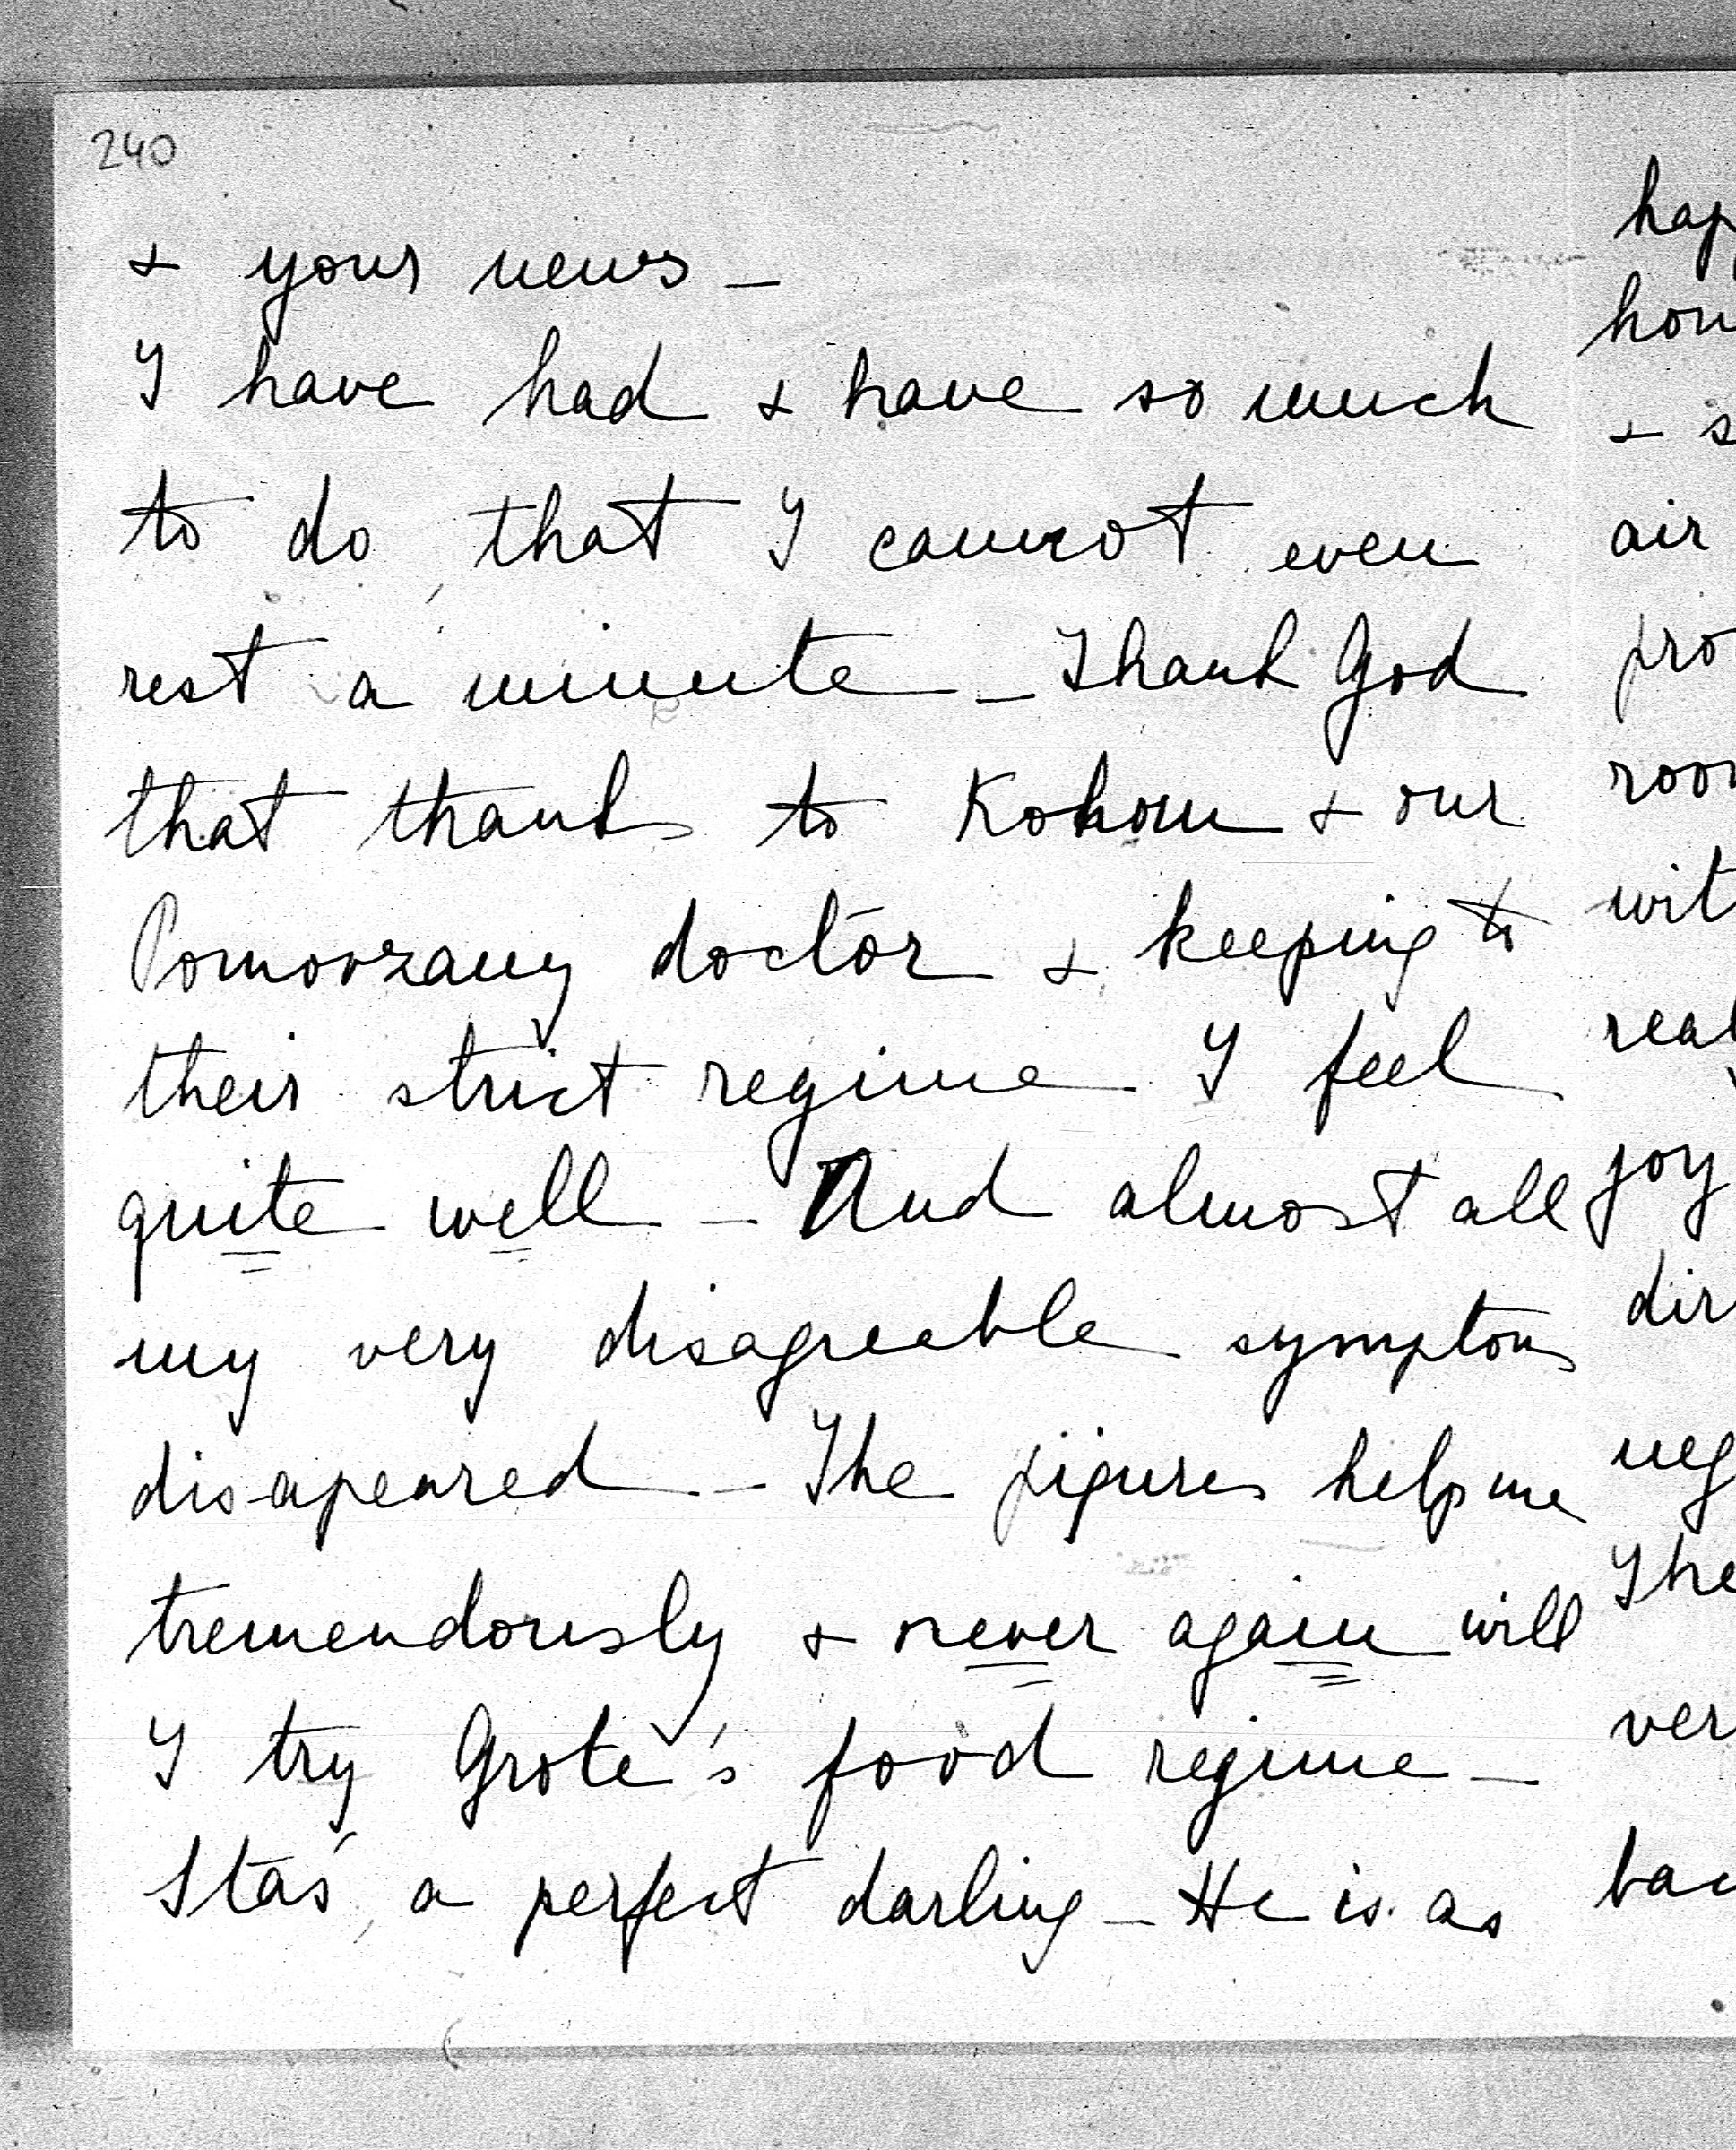 240
& your news –
I have had & have so much
to do that I cannot even
rest a minute – Thank God
that thanks to Kohow & our
Pomorzany doctor & keeping to
their strict regime I feel
quite well – And almost all
my very disagreeble symptoms
disapeared – The jigures help me
tremendously & never again will
I try Grote's food regime –
Staś a perfect darling – He is as
hap
hou
& s
air
pro
roon
wit
real
joy
dir
neg
The
ver
bac